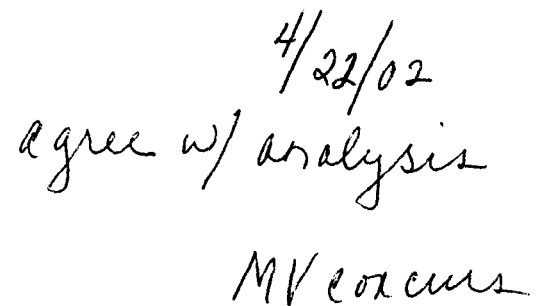 4/22/02
agree w/ analysis
MV concurs